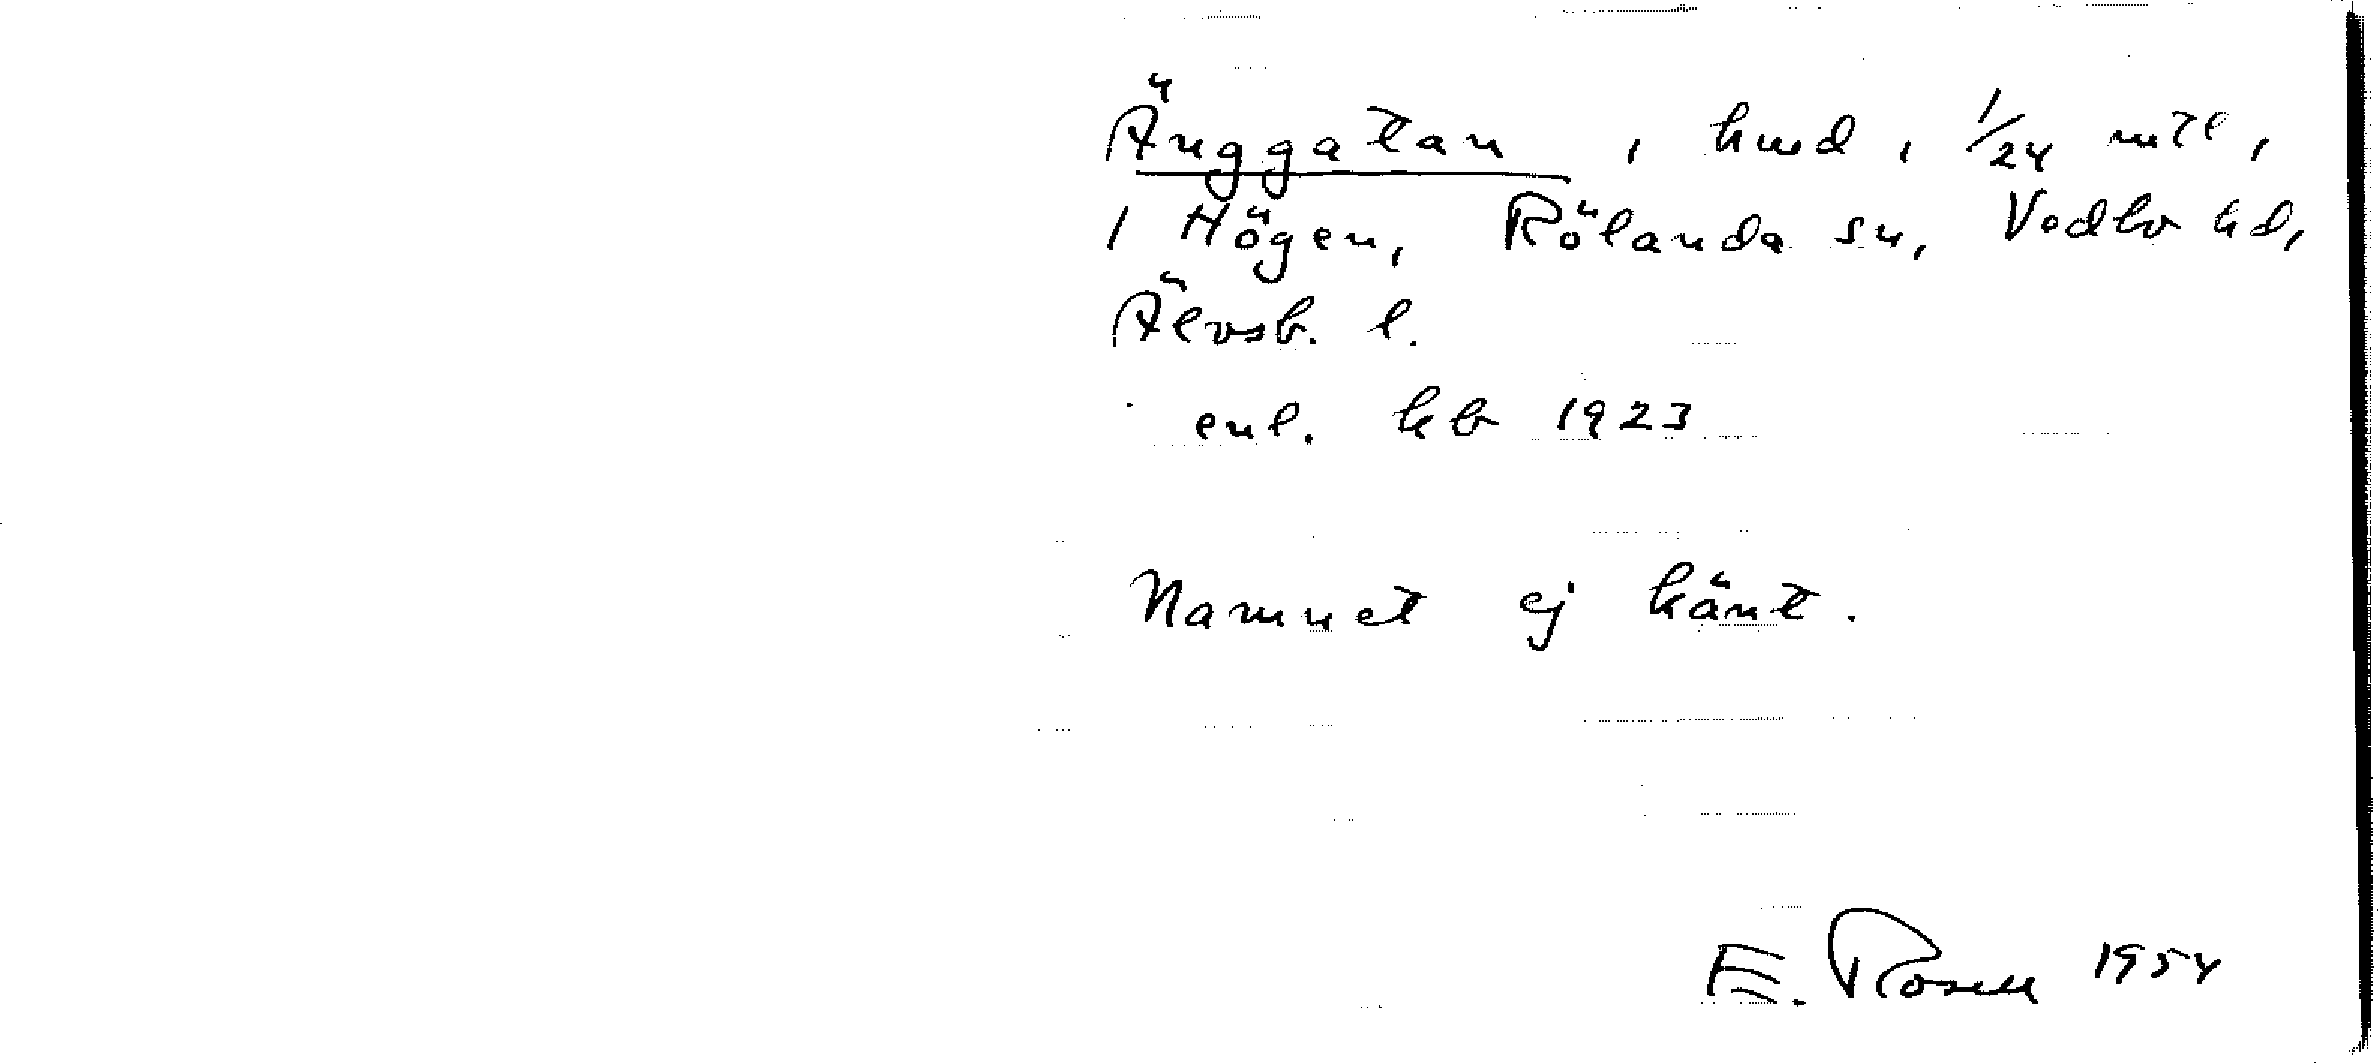 Änggatan, hmd, 1/24 mtl,
i Högen, Rölanda sn, Vedbo hd,
Älvsb. l.
enl. kb 1923
Namnet ej känt.
E. Rosell 1954